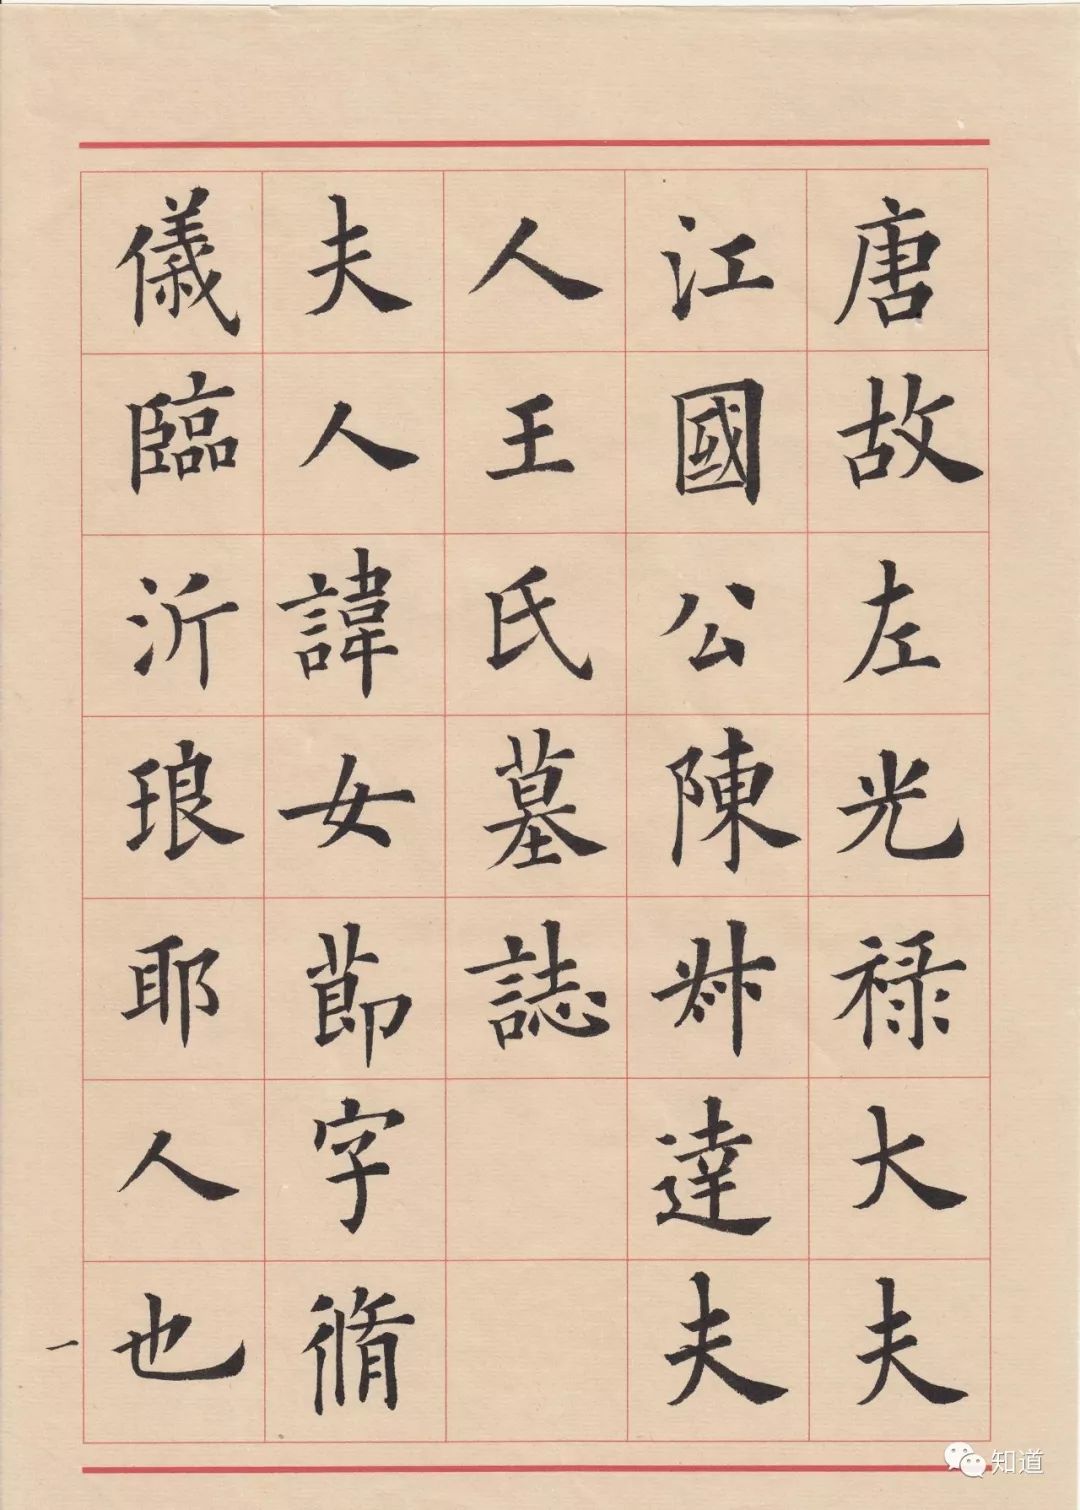 唐故左光祿大夫
江國公陳叔達夫
人王氏墓誌
夫人諱女節字脩
儀臨沂琅耶人也
一
知道